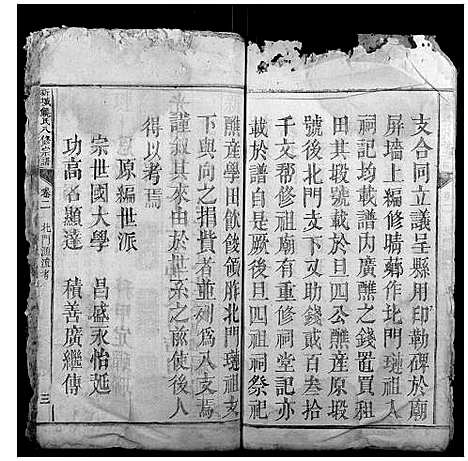 支合同立議呈縣用印勒碑於廟
屏墻上編修晴薌作北門璉祖人
祠記均載譜內廣醮之錢置買租
田其塅載於旦四公醮產原塅
號後北門支下又助錢貳百叁拾
千文帮修祖廟有重修祠堂記亦
載於譜自是厥後旦四祖祠祭祀
醮產學田飲餕領胙北門璉祖支
下與向之捐貲者並列為八支焉
謹叙其來由於世系之前使後人
得以考焉
原編世派
宗世國大學 昌盛永怡延
功高名顯達 積善廣繼傳
卷二 北門源流考
三